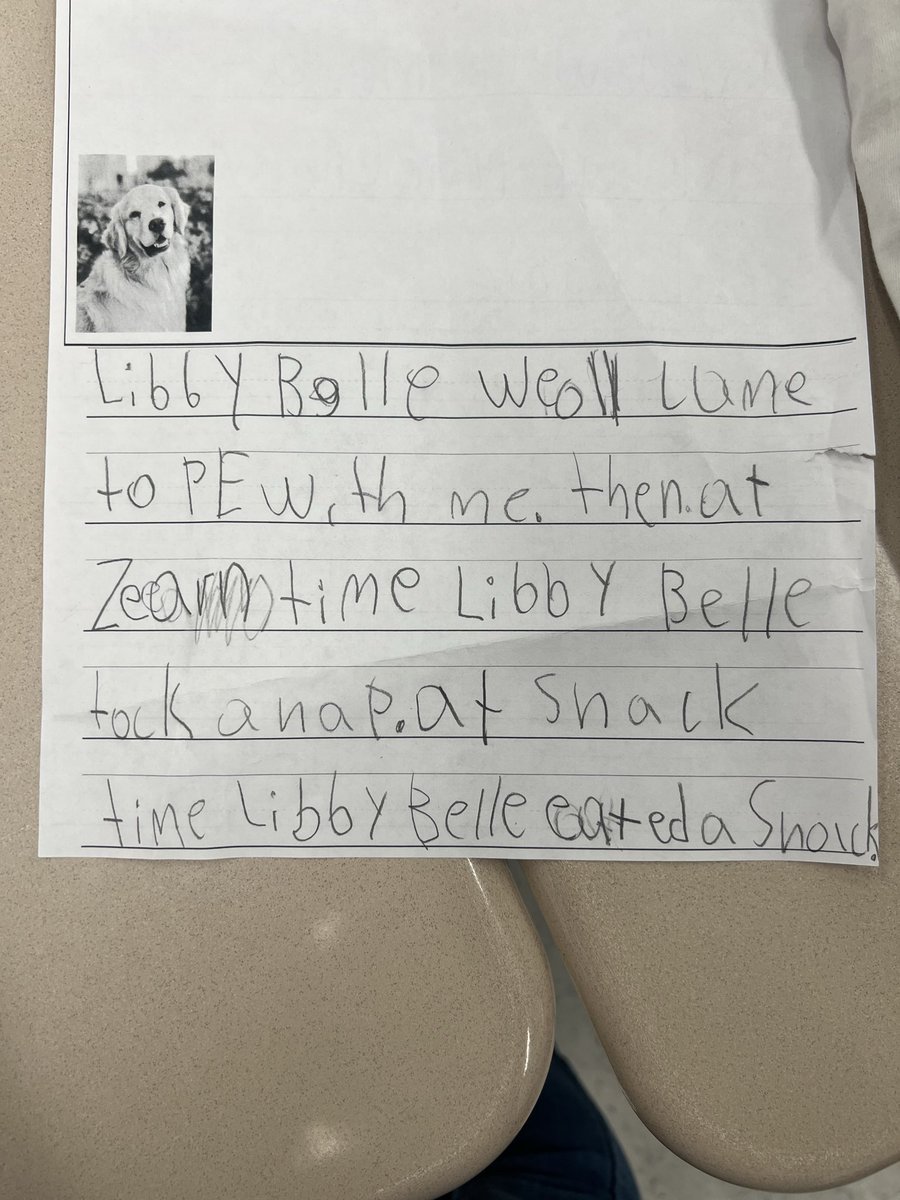 Libby Belle weoll came
to PE with me. then.at
time Libby Belle
tock a nap. At Snack
time Libby Belle eated a Snack.